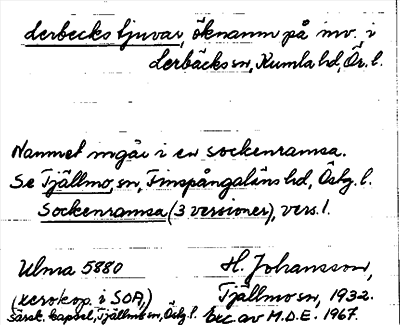 Lerbecks tjuvar, öknamn på inv. i
Lerbäcks sn, Kumla hd, Ör. l.
Namnet ingår i en sockenramsa.
Se Tjällmo, sn, Finspångaläns hd, Östg. l.
Sockenramsa (3 versioner), vers. 1.
Ulma 5880
H. Johansson,
(xerokop. i SOA,)
Tjällmo sn, 1932.
Särsk. kapsel, Tjällmo sn, Östg. l.
Exc. av M.D.E. 1967.